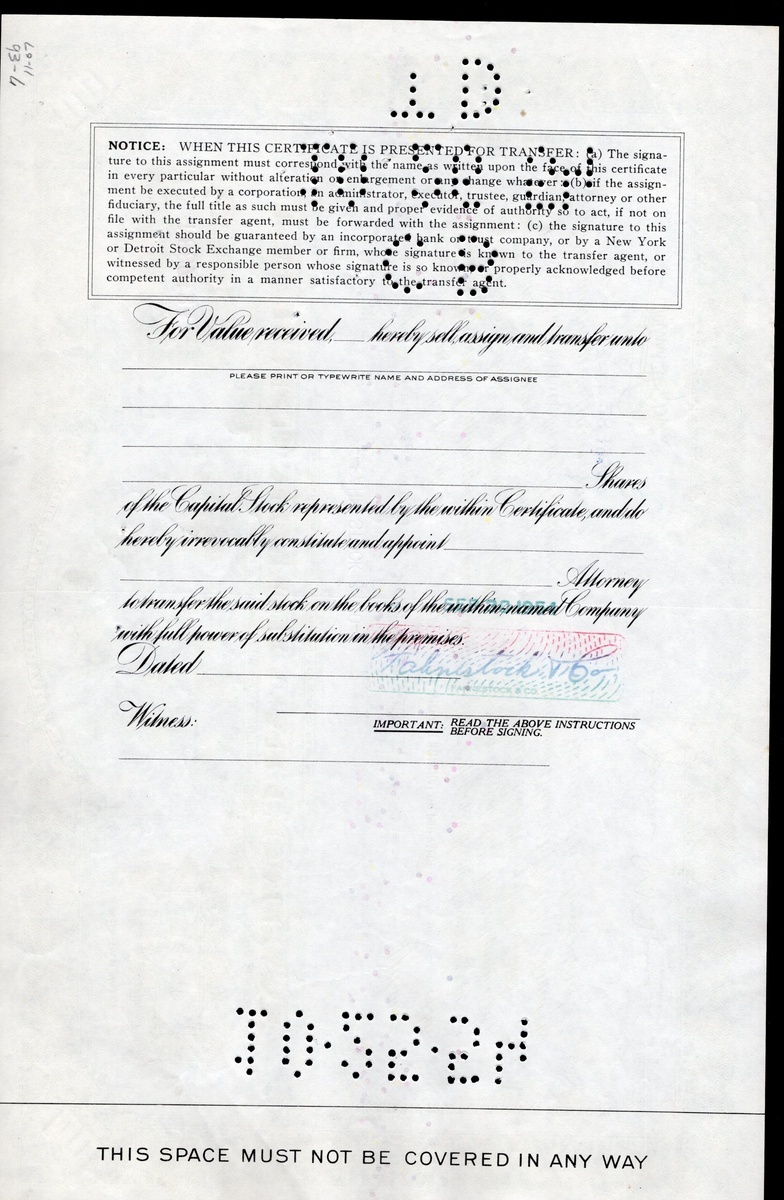 NOTICE: WHEN THIS CERTIFICATE IS PRESENTED FOR TRANSFER: (a) The signa-
ture to this assignment must correspond with the name as written upon the face of this certificate
in every particular without alteration or enlargement or any change whatever: (b) if the assign-
ment be executed by a corporation, an administrator, executor, trustee, guardian, attorney or other
fiduciary, the full title as such must be given and proper evidence of authority so to act, if not on
file with the transfer agent, must be forwarded with the assignment: (c) the signature to this
assignment should be guaranteed by an incorporated bank or trust company, or by a New York
or Detroit Stock Exchange member or firm, whose signature is known to the transfer agent, or
witnessed by a responsible person whose signature is so known, or properly acknowledged before
competent authority in a manner satisfactory to the transfer agent.
For Value received, hereby sell, assign and transfer unto
PLEASE PRINT OR TYPEWRITE NAME AND ADDRESS OF ASSIGNEE
Shares
of the Capital Stock represented by the within Certificate, and do
hereby irrevocably constitute and appoint
Attorney
to transfer the said stock on the books of the within-named Company
with full power of substitution in the premises.
Dated
Fahnestock & Co
FAHNESTOCK & CO.
Witness:
IMPORTANT: READ THE ABOVE INSTRUCTIONS
BEFORE SIGNING.
THIS SPACE MUST NOT BE COVERED IN ANY WAY